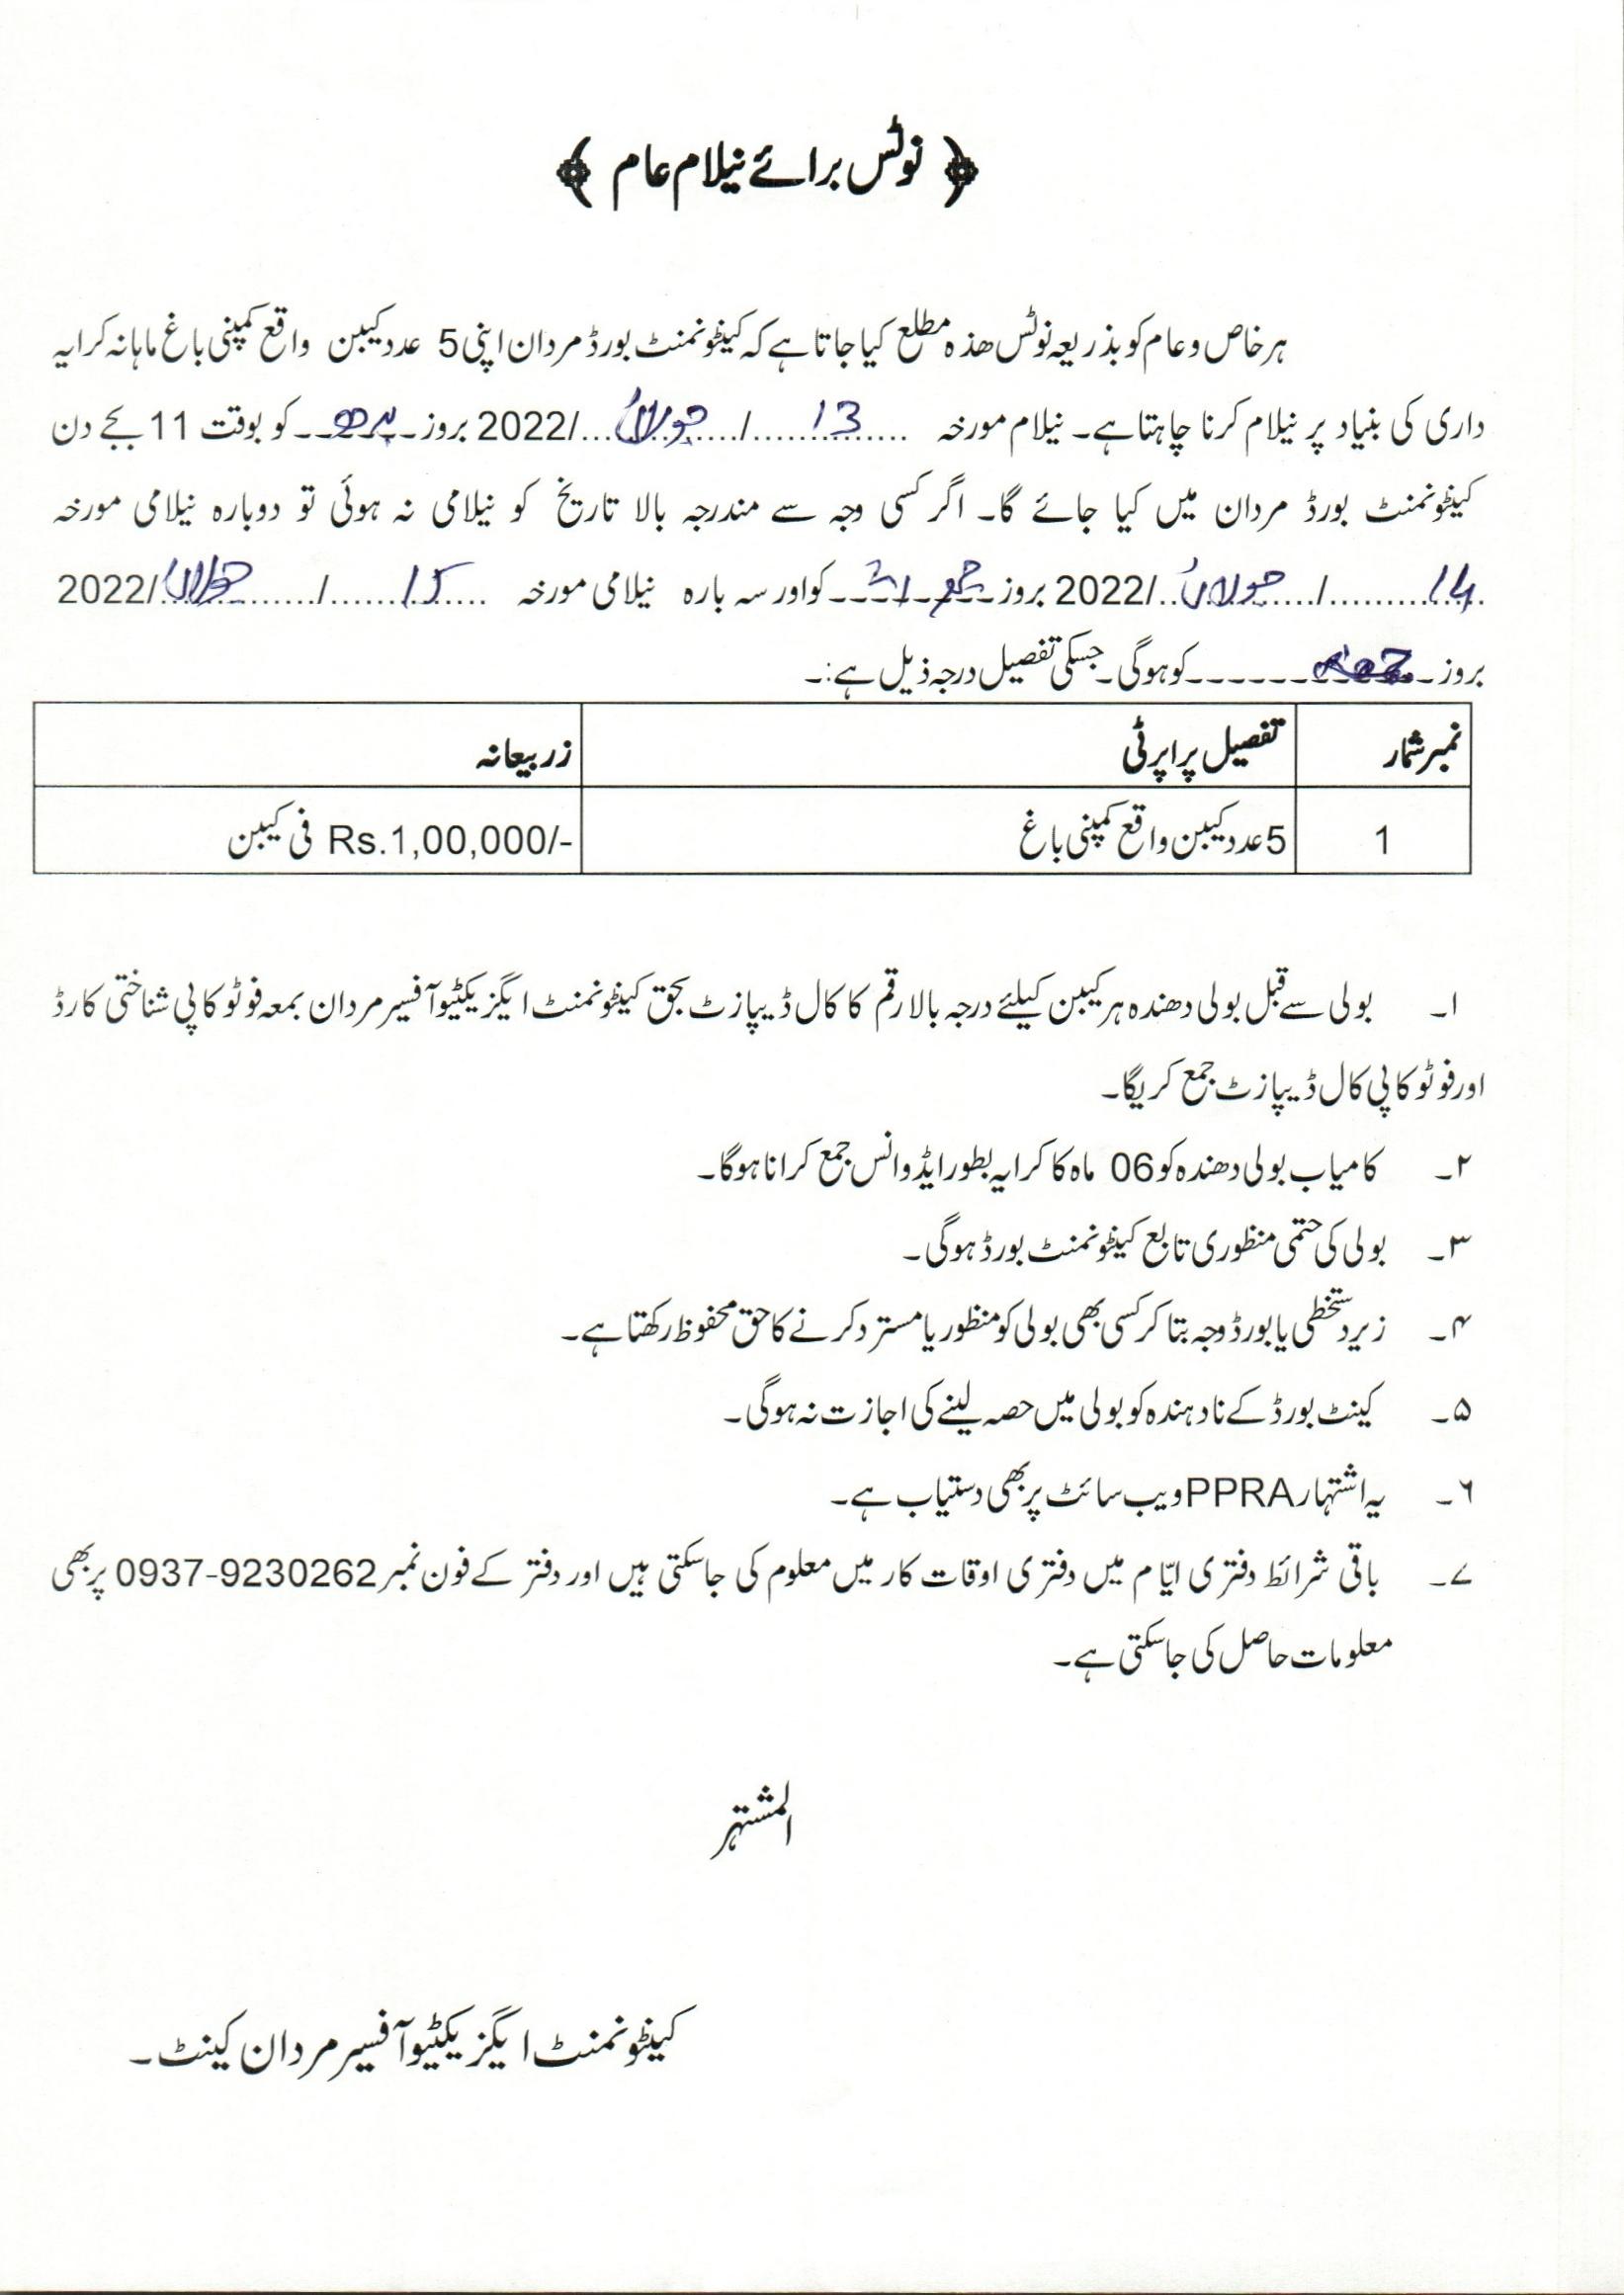 ﴿ نوٹس برائے نیلام عام ﴾
ہر خاص و عام کو بذریعہ نوٹس ھذہ مطلع کیا جاتا ہے کہ کینٹونمنٹ بورڈ مردان اپنی 5 عدد کیبن واقع کمپنی باغ ماہانہ کرایہ
داری کی بنیاد پر نیلام کرنا چاہتا ہے۔ نیلام مورخہ 13/جولائی/2022 بروز بدھ کو بوقت 11 بجے دن
کینٹونمنٹ بورڈ مردان میں کیا جائے گا۔ اگر کسی وجہ سے مندرجہ بالا تاریخ کو نیلامی نہ ہوئی تو دوبارہ نیلامی مورخہ
14/جولائی/2022 بروز جمعرات کو اور سہ بارہ نیلامی مورخہ 15/جولائی/2022
بروز جمعہ کو ہوگی۔ جسکی تفصیل درجہ ذیل ہے:۔
نمبر شمار تفصیل پراپرٹی زر بیعانہ
1 5 عدد کیبن واقع کمپنی باغ Rs.1,00,000/- فی کیبن
۱۔ بولی سے قبل بولی دھندہ ہر کیبن کیلئے درجہ بالا رقم کا کال ڈیپازٹ بحق کینٹونمنٹ ایگزیکٹیو آفسیر مردان بمعہ فوٹو کاپی شناختی کارڈ
اور فوٹو کاپی کال ڈیپازٹ جمع کریگا۔
۲۔ کامیاب بولی دھندہ کو 06 ماہ کا کرایہ بطور ایڈوانس جمع کرانا ہوگا۔
۳۔ بولی کی حتمی منظوری تابع کینٹونمنٹ بورڈ ہوگی۔
۴۔ زیر دستخطی یا بورڈ وجہ بتا کر کسی بھی بولی کو منظور یا مسترد کرنے کا حق محفوظ رکھتا ہے۔
۵۔ کینٹ بورڈ کے نادہندہ کو بولی میں حصہ لینے کی اجازت نہ ہوگی۔
۶۔ یہ اشتہار PPRA ویب سائٹ پر بھی دستیاب ہے۔
۷۔ باقی شرائط دفتری ایّام میں دفتری اوقات کار میں معلوم کی جاسکتی ہیں اور دفتر کے فون نمبر 0937-9230262 پر بھی
معلومات حاصل کی جاسکتی ہے۔
المشتہر
کینٹونمنٹ ایگزیکٹیو آفسیر مردان کینٹ۔